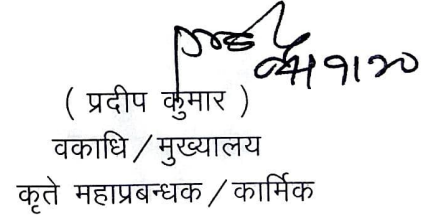 ( प्रदीप कुमार )
वकाधि / मुख्यालय
कृते महाप्रबन्धक / कार्मिक